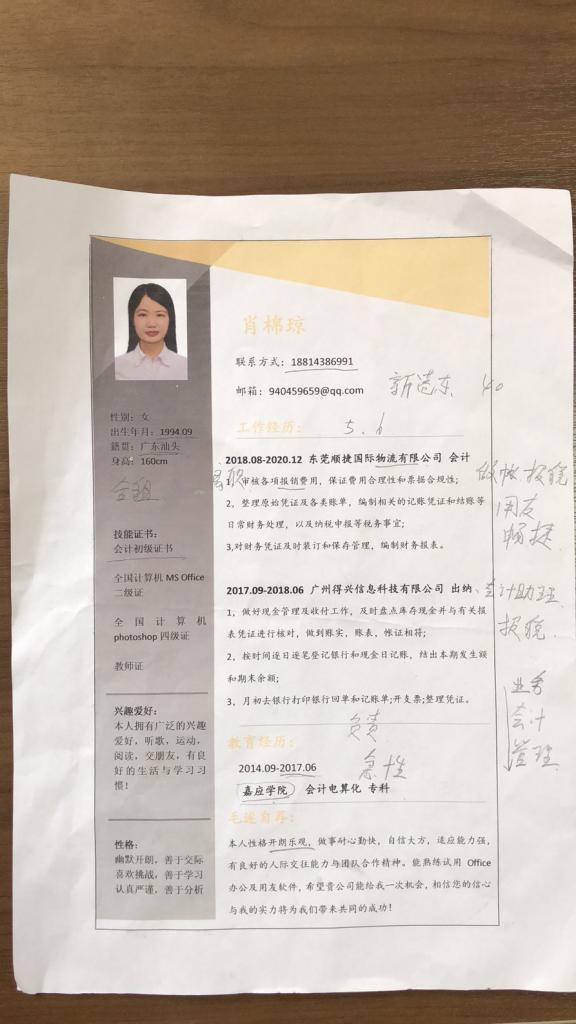 肖棉琼
联系方式：18814386991
邮箱：940459659@qq.com
新造东 40
性别：女
出生年月：1994.09
籍贯：广东汕头
身高：160cm
合租
技能证书：
会计初级证书
全国计算机 MS Office
二级证
全国计算机
photoshop 四级证
教师证
兴趣爱好：
本人拥有广泛的兴趣
爱好，听歌，运动，
阅读，交朋友，有良
好的生活与学习习
惯！
性格：
幽默开朗，善于交际
喜欢挑战，善于学习
认真严谨，善于分析
工作经历：
2018.08-2020.12 东莞顺捷国际物流有限公司 会计
1，审核各项报销费用，保证费用合理性和票据合规性；
2，整理原始凭证及各类账单，编制相关的记账凭证和结账等
日常财务处理，以及纳税申报等税务事宜；
3,对财务凭证及时装订和保存管理，编制财务报表。
做帐 报税
用友
畅捷
2017.09-2018.06 广州得兴信息科技有限公司 出纳、会计助理
1，做好现金管理及收付工作，及时盘点库存现金并与有关报
表凭证进行核对，做到账实，账表，帐证相符；
2，按时间逐日逐笔登记银行和现金日记账，结出本期发生额
和期末余额；
3，月初去银行打印银行回单和记账单;开支票;整理凭证。
报税
业务
会计
管理
负责
急性
教育经历：
2014.09-2017.06
嘉应学院 会计电算化 专科
毛遂自荐：
本人性格开朗乐观，做事耐心勤快，自信大方，适应能力强，
有良好的人际交往能力与团队合作精神。能熟练试用 Office
办公及用友软件，希望贵公司能给我一次机会，相信您的信心
与我的实力将为我们带来共同的成功！